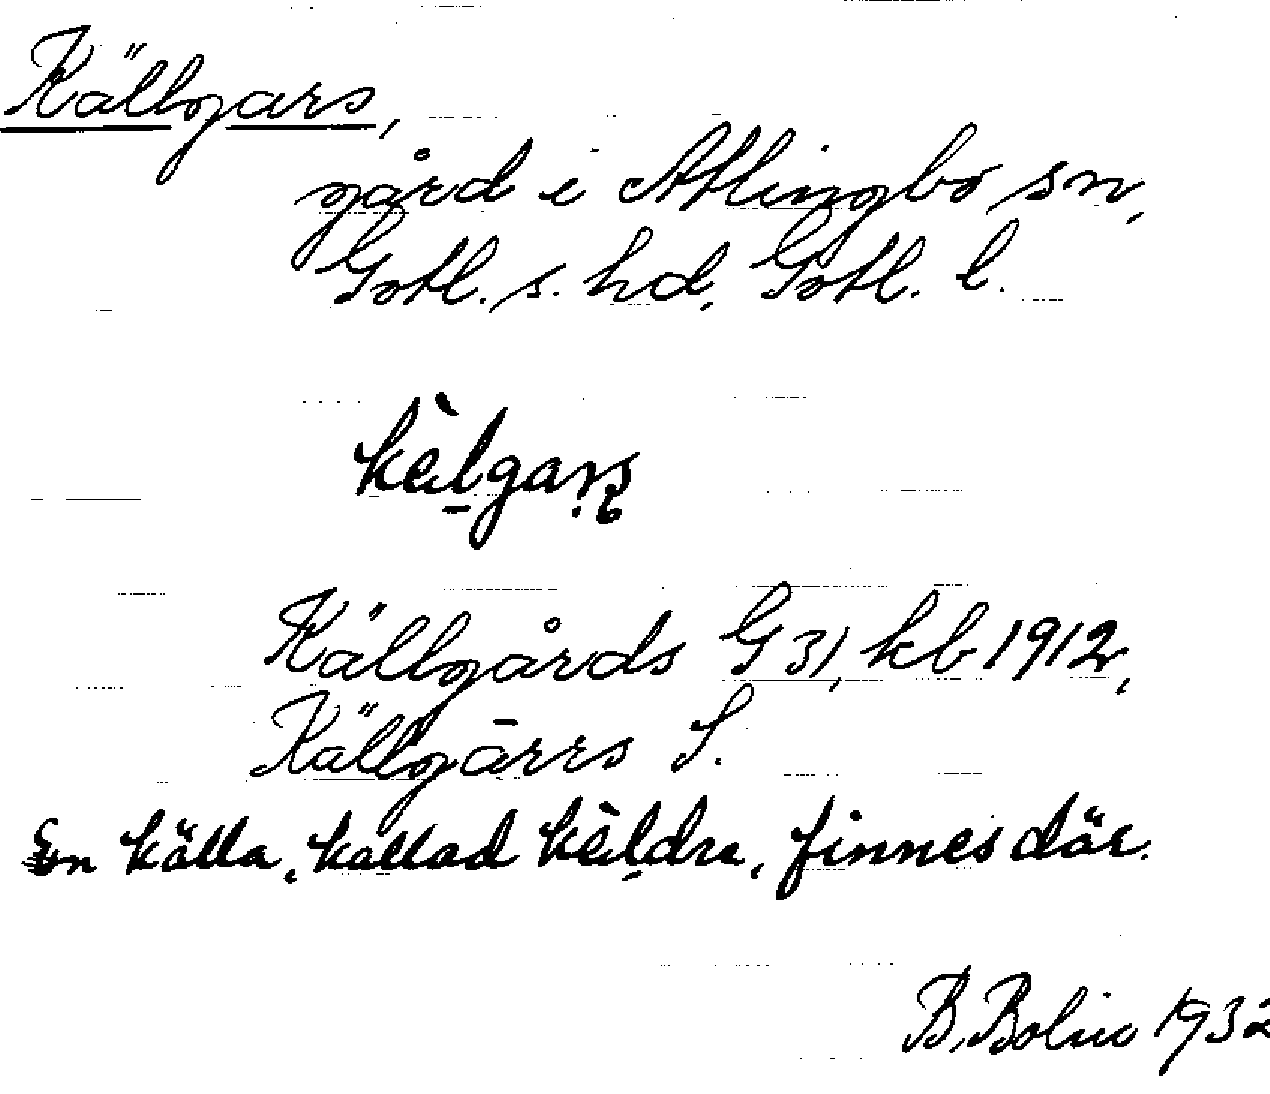 Källgars,
gård i Atlingbo sn,
Gotl. s. hd, Gotl. l.
kèlgars
Källgårds G 31, kb 1912,
Källgārrs S.
En källa, kallad kèldrę, finnes där.
B. Bolin 1932